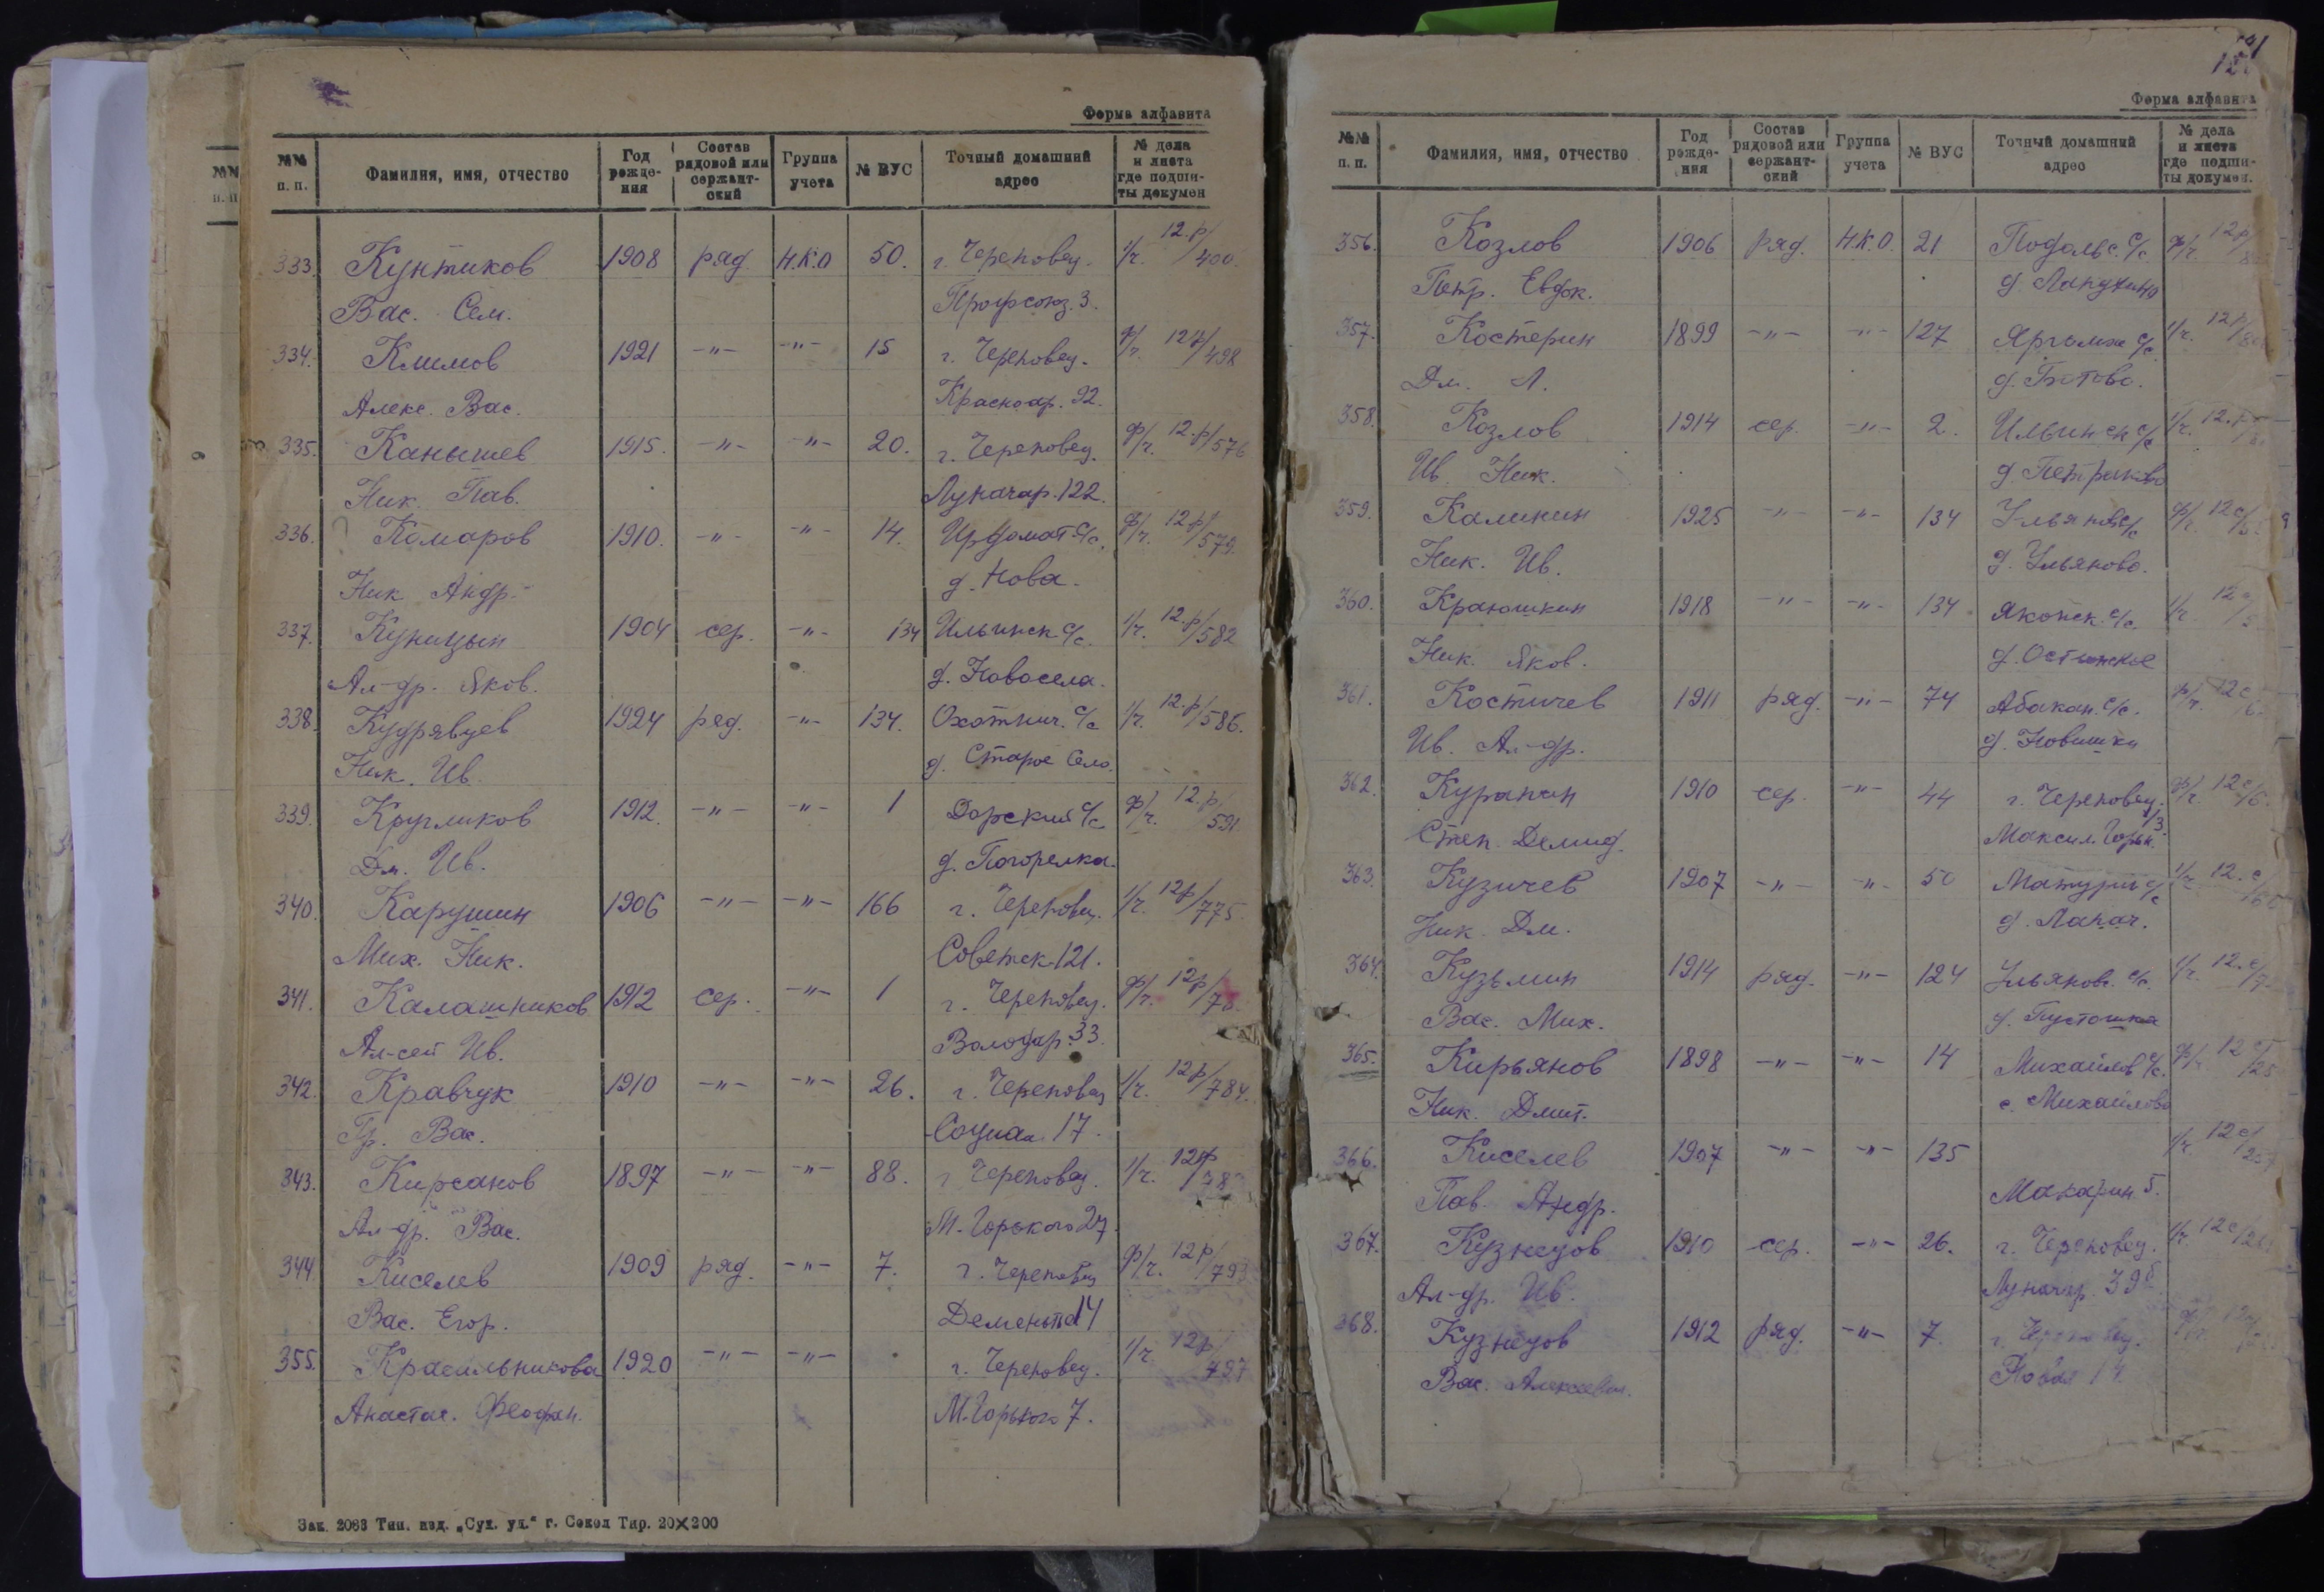 Форма алфавита
№№ п. п. Фамилия, имя, отчество Год рожде-ния Состав рядовой или сержант-ский Группа учета № ВУС Точный домашний адрес № дела и листа где подши-ты докумен
333. Кунтиков 1908 ряд. Н.К.О 50. г. Череповец. 1/г. 12.р/400.
Вас. Сем. Профсоюз. 3.
334. Климов 1921 -"- -"- 15 г. Череповец. ф/г. 12р/498
Алекс. Вас. Красноар. 92.
335. Канышев 1915. -"- -"- 20. г. Череповец. ф/г. 12.р/576
Ник. Пав. Луначар. 122.
336. Комаров 1910. -"- -"- 14. Ирдомат с/с. ф/г. 12р/579.
Ник Андр. д. Нова.
337. Куницын 1904 сер. -"- 134 Ильинск с/с. 1/г. 12.р/582
Ал-др. Яков. д. Новосела.
338. Кудрявцев 1924 ряд. -"- 134. Охотнич. с/с 1/г. 12.р/586.
Ник. Ив. д. Старое Село.
339. Кругликов 1912. -"- -"- 1 Дорский с/с ф/г. 12.р/591
Дм. Ив. д. Погорелка.
340. Карушин 1906 -"- -"- 166 г. Череповец. 1/г. 12р/775.
Мих. Ник. Советск. 121.
341. Калашников 1912 сер. -"- 1 г. Череповец. ф/г. 12р/78
Ал-сей Ив. Володар. 33.
342. Кравчук 1910 -"- -"- 26. г. Череповец 1/г. 12р/784.
Гр. Вас. Социал. 17.
343. Кирсанов 1897 -"- -"- 88. г Череповец. 1/г. 12р/78
Ал-др. Вас. М. Горького 27.
344. Киселев 1909 ряд. -"- 7. г. Череповец ф/г. 12р/79
Вас. Егор. Деменьтьева 14
355. Красильникова 1920 -"- -"- г. Череповец. 1/г. 12р/797
Анастас. Феофан. М. Горького 7.
Зак. 2083 Тип. изд. „Сух. ул." г. Сокол Тир. 20×200
Форма алфавита
№№ п. п. Фамилия, имя, отчество Год рожде-ния Состав рядовой или сержант-ский Группа учета № ВУС Точный домашний адрес № дела и листа где подши-ты докумен.
356. Козлов 1906 ряд. Н.К.О. 21 Подольс. с/с. ф/г. 12р/8
Петр. Евдок. д. Лапухино
357. Костерин 1899 -"- -"- 127 Яргомж с/с. 1/г. 12р/8
Дм. Л. д. Ботово.
358. Козлов 1914 сер. -"- 2. Ильинск с/с 1/г. 12.р/8
Ив. Ник. д. Петряково
359. Каликин 1925 -"- -"- 134 Ульянов с/с ф/г. 12с/5
Ник. Ив. д. Ульяново.
360. Краюшкин 1918 -"- -"- 134. Яконск. с/с. 1/г. 12с/5
Ник. Яков. д. Остинское
361. Костичев 1911 ряд. -"- 74 Абакан. с/с. ф/г. 12с/6.
Ив. Ал-др. д. Новишки
362. Курапин 1910 сер. -"- 44 г. Череповец. ф/г. 12с/6.
Степ. Демид. Максим. Горьк. 3.
363. Кузичев 1907 -"- -"- 50 Матурин с/с 1/г. 12.с/60
Ник. Дм. д. Лапач.
364. Кузьмин 1914 ряд. -"- 124 Ульянов. с/с. 1/г. 12.с/7.
Вас. Мих. д. Пустошка
365. Кирьянов 1898 -"- -"- 14 Михайлов с/с. ф/г. 12 с/25
Ник. Дмит. с. Михайлово
366. Киселев 1907 -"- -"- 135 1/г. 12с/20
Пав. Андр. Макарин. 5.
367. Кузнецов 1910 сер. -"- 26. г. Череповец. 1/г. 12с/2
Ал-др. Ив. Луначар. 39б
368. Кузнецов 1912 ряд. -"- 7. г. Череповец.
Вас. Алексеевич. Новая 14